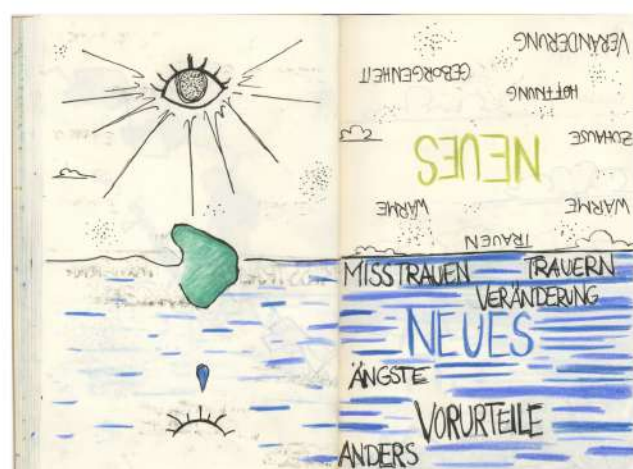 VERÄNDERUNG
GEBORGENHEIT
HOFFNUNG
ZUHAUSE
NEUES
WÄRME WÄRME
TRAUEN
MISSTRAUEN TRAUERN
VERÄNDERUNG
NEUES
ÄNGSTE
VORURTEILE
ANDERS